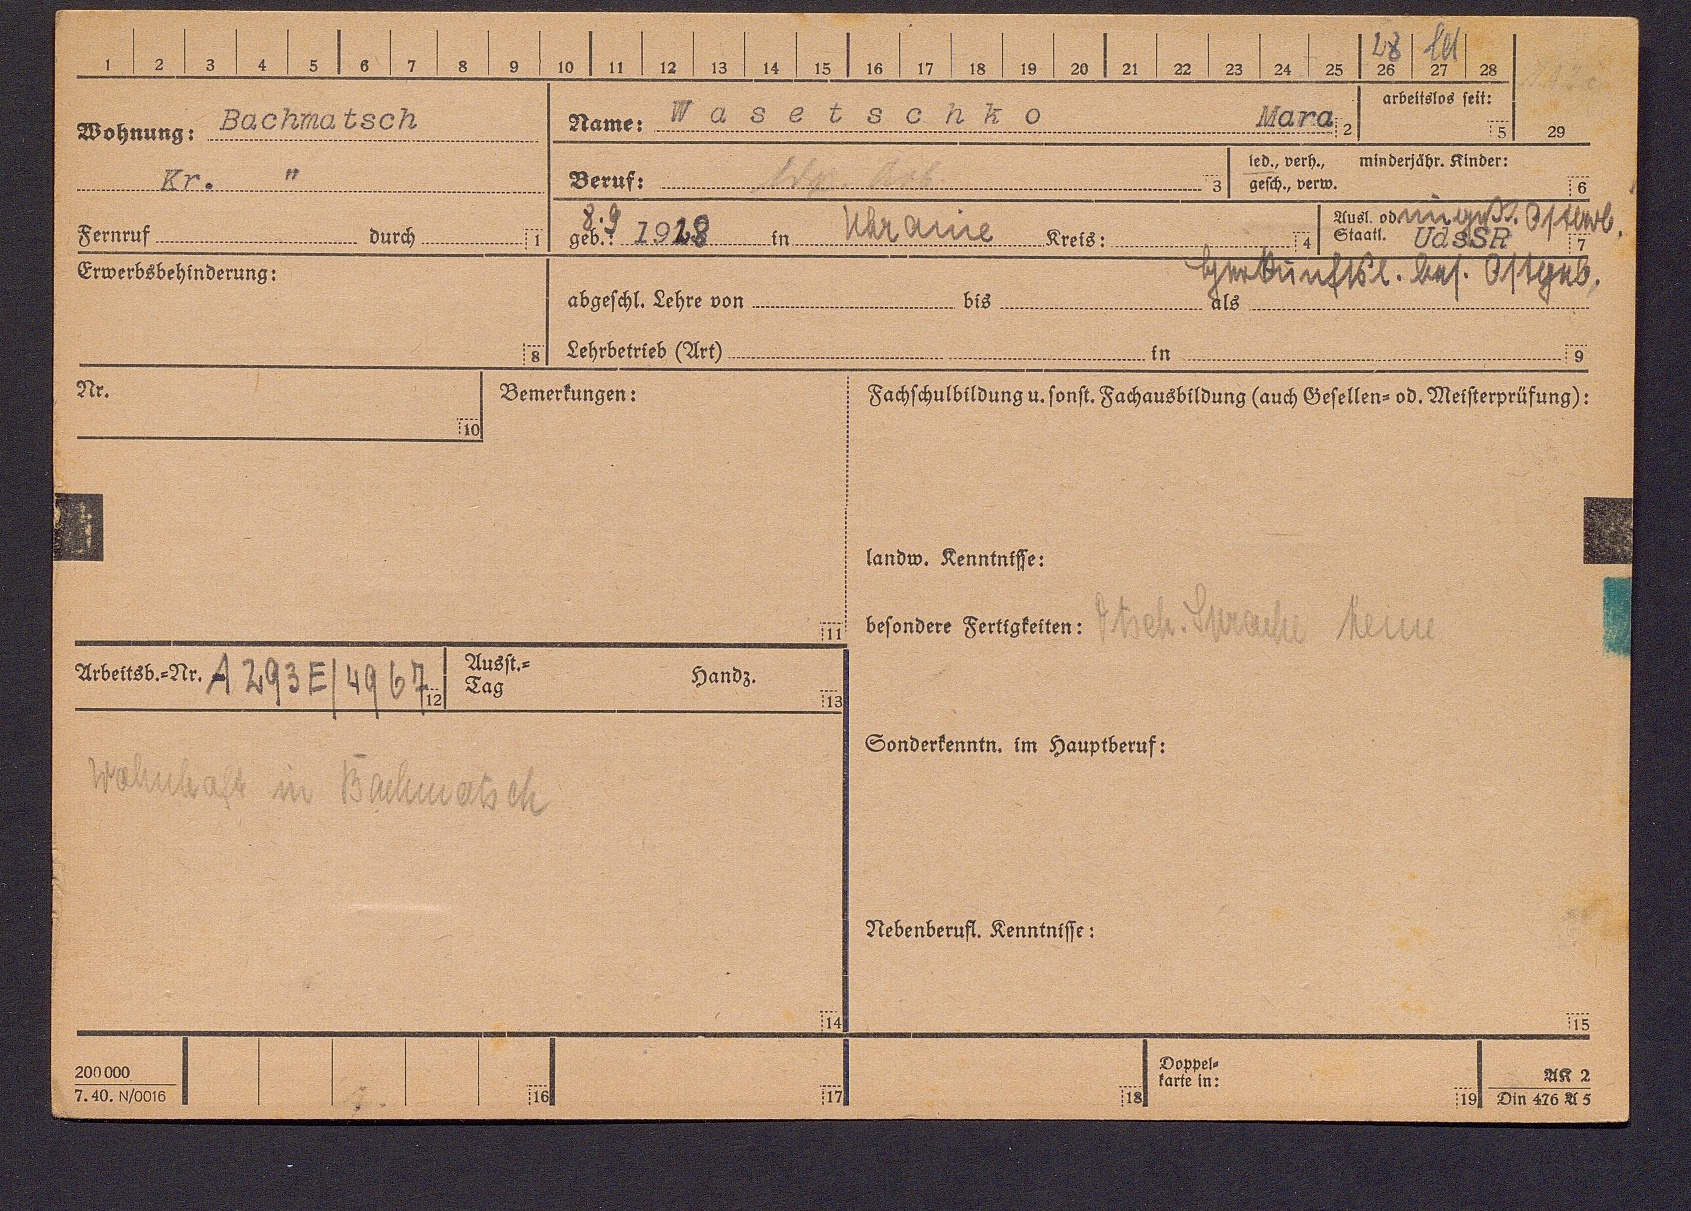 1 2 3 4 5 6 7 8 9 10 11 12 13 14 15 16 17 18 19 20 21 22 23 24 25 26 27 28
28
Wohnung: Bachmatsch
Kr. "
Name: Wasetschko Mara 2
arbeitslos seit: 5
29
Beruf: Ldw. Arb. 3
led., verh., gesch., verw.
minderjähr. Kinder: 6
Fernruf durch 1
geb.: 8.9 1928 in Ukraine Kreis: 4
Ausl. od. Staatl. UdSSR Ostarb. 7
Herkunftsl. bes. Ostgeb.
Erwerbsbehinderung: 8
abgeschl. Lehre von bis als
Lehrbetrieb (Art) in 9
Nr. 10
Bemerkungen: 11
Fachschulbildung u. sonst. Fachausbildung (auch Gesellen= od. Meisterprüfung):
landw. Kenntnisse:
besondere Fertigkeiten: Dtsch. Sprache keine
Arbeitsb.=Nr. A 293E/4967 12
Ausst.=
Tag
Handz. 13
Sonderkenntn. im Hauptberuf:
Wohnhaft in Bachmatsch
Nebenberufl. Kenntnisse:
14
15
200 000
7. 40. N/0016
16
17
18
Doppel=
karte in: 19
AK 2
Din 476 A 5